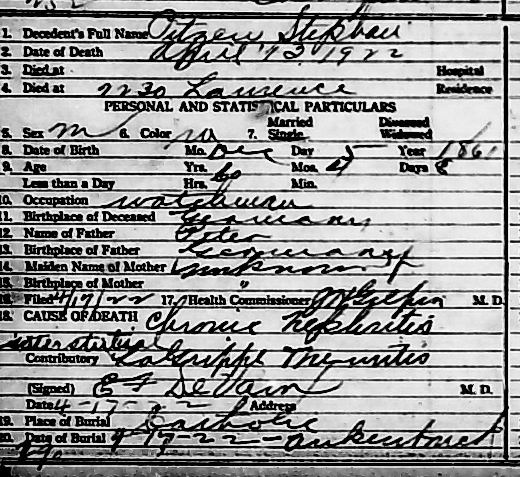 1. Decedent's Full Name Pitzen Stephan
2. Date of Death April 13 1922
3. Died at Hospital
4. Died at 2230 Lawrence Residence
PERSONAL AND STATISTICAL PARTICULARS
5. Sex M 6. Color W 7. Married Single Divorced Widowed
8. Date of Birth Mo. Dec Day 5 Year 1861
9. Age Yrs. 60 Mos. 4 Days 8
Less than a Day Hrs. Min.
10. Occupation watchman
11. Birthplace of Deceased Germany
12. Name of Father Peter
13. Birthplace of Father Germany
14. Maiden Name of Mother unknown
15. Birthplace of Mother "
16. Filed 4/17/22 17. Health Commissioner M. D.
18. CAUSE OF DEATH Chronic Nephritis
interstitial
Contributory LaGrippe
(Signed) M. D.
Date 4-17-22 Address
19. Place of Burial Catholic
20. Date of Burial 4-17-22-